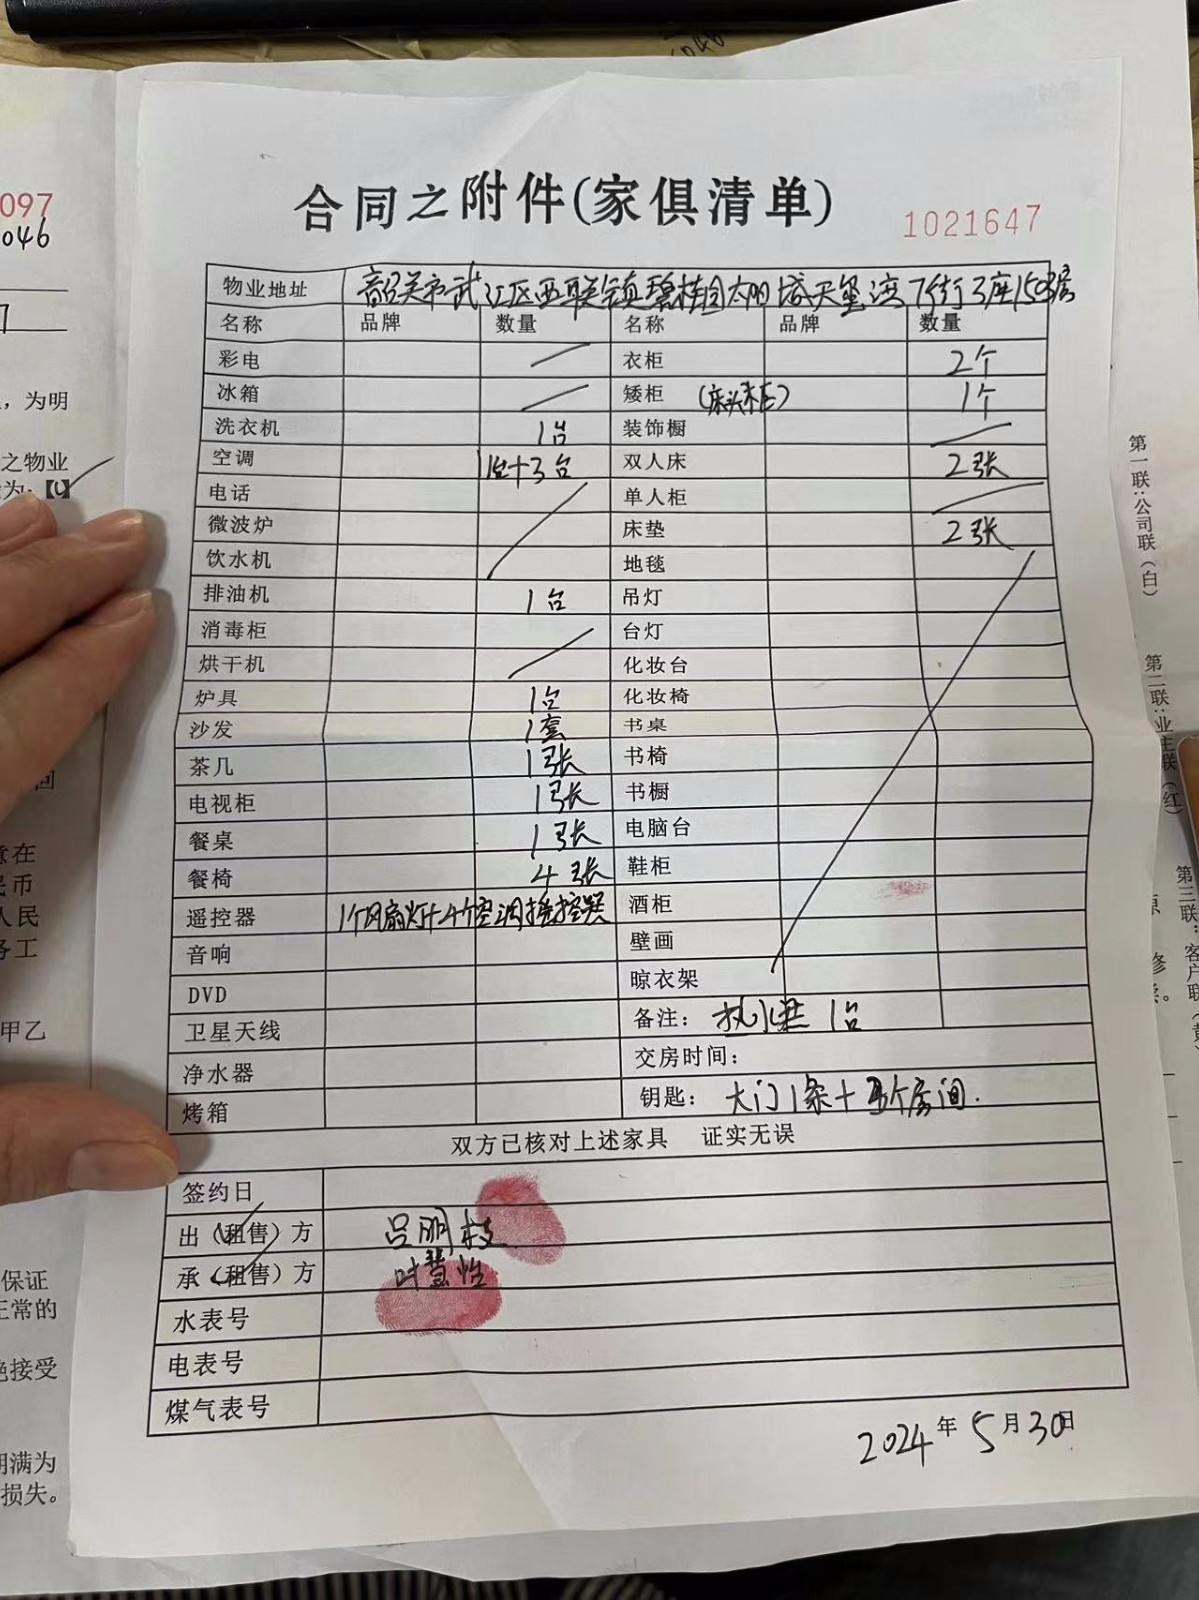 合同之附件(家俱清单)
1021647
物业地址 韶关市武江区西联镇碧桂园太阳城天玺湾7街3座1503房
名称 品牌 数量 名称 品牌 数量
彩电 衣柜 2个
冰箱 矮柜 (床头柜) 1个
洗衣机 1台 装饰橱
空调 1台+3台 双人床 2张
电话 单人柜
微波炉 床垫 2张
饮水机 地毯
排油机 1台 吊灯
消毒柜 台灯
烘干机 化妆台
炉具 1台 化妆椅
沙发 1套 书桌
茶几 1张 书椅
电视柜 1张 书橱
餐桌 1张 电脑台
餐椅 4张 鞋柜
遥控器 1个风扇灯+4个空调摇控器 酒柜
音响 壁画
DVD 晾衣架
卫星天线 备注: 热水器 1台
净水器 交房时间:
烤箱 钥匙: 大门1条+3个房间.
双方已核对上述家具 证实无误
签约日
出(租售)方 吕明枝
承(租售)方
水表号
电表号
煤气表号
2024年5月30日
第一联:公司联(白)
第二联:业主联(红)
第三联:客户联(黄)
097
046
7
,为明
之物业
为:【
意在
民币
人民
务工
甲乙
保证
正常的
绝接受
期满为
损失。